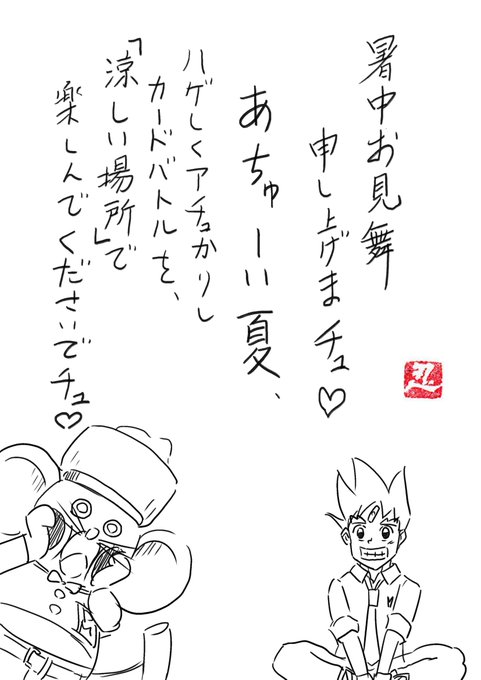 暑中お見舞
申し上げまチュ♡
あちゅーい夏、
ハゲしくアチュかりし
カードバトルを、
「涼しい場所」で
楽しんでくださいでチュ♡